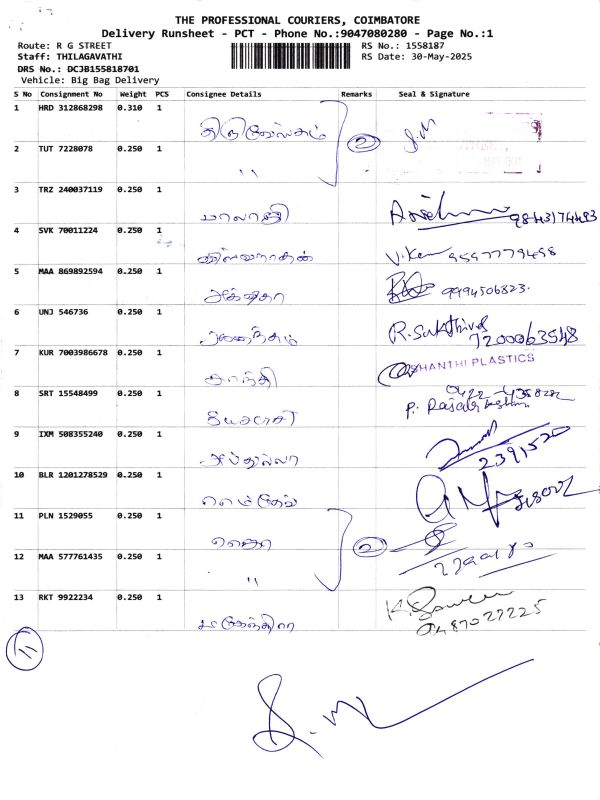 THE PROFESSIONAL COURIERS, COIMBATORE
Delivery Runsheet - PCT - Phone No.:9047080280 - Page No.:1
Route: R G STREET
Staff: THILAGAVATHI
DRS No.: DCJB155818701
Vehicle: Big Bag Delivery
RS No.: 1558187
RS Date: 30-May-2025
S No Consignment No Weight PCS Consignee Details Remarks Seal & Signature
1 HRD 312868298 0.310 1
2
2 TUT 7228078 0.250 1
"
3 TRZ 240037119 0.250 1
பாலாஜி 9843174493
4 SVK 70011224 0.250 1
விஸ்வநாதன் 9597779498
5 MAA 869892594 0.250 1
9994506823
6 UNJ 546736 0.250 1
ஆனந்தம் R. Sakthivel
7200063548
7 KUR 7003986678 0.250 1
சாந்தி SHANTHI PLASTICS
8 SRT 15548499 0.250 1
9 IXM 508355240 0.250 1
அப்துல்லா 2391520
10 BLR 1201278529 0.250 1
11 PLN 1529055 0.250 1
2
12 MAA 577761435 0.250 1
"
13 RKT 9922234 0.250 1
11